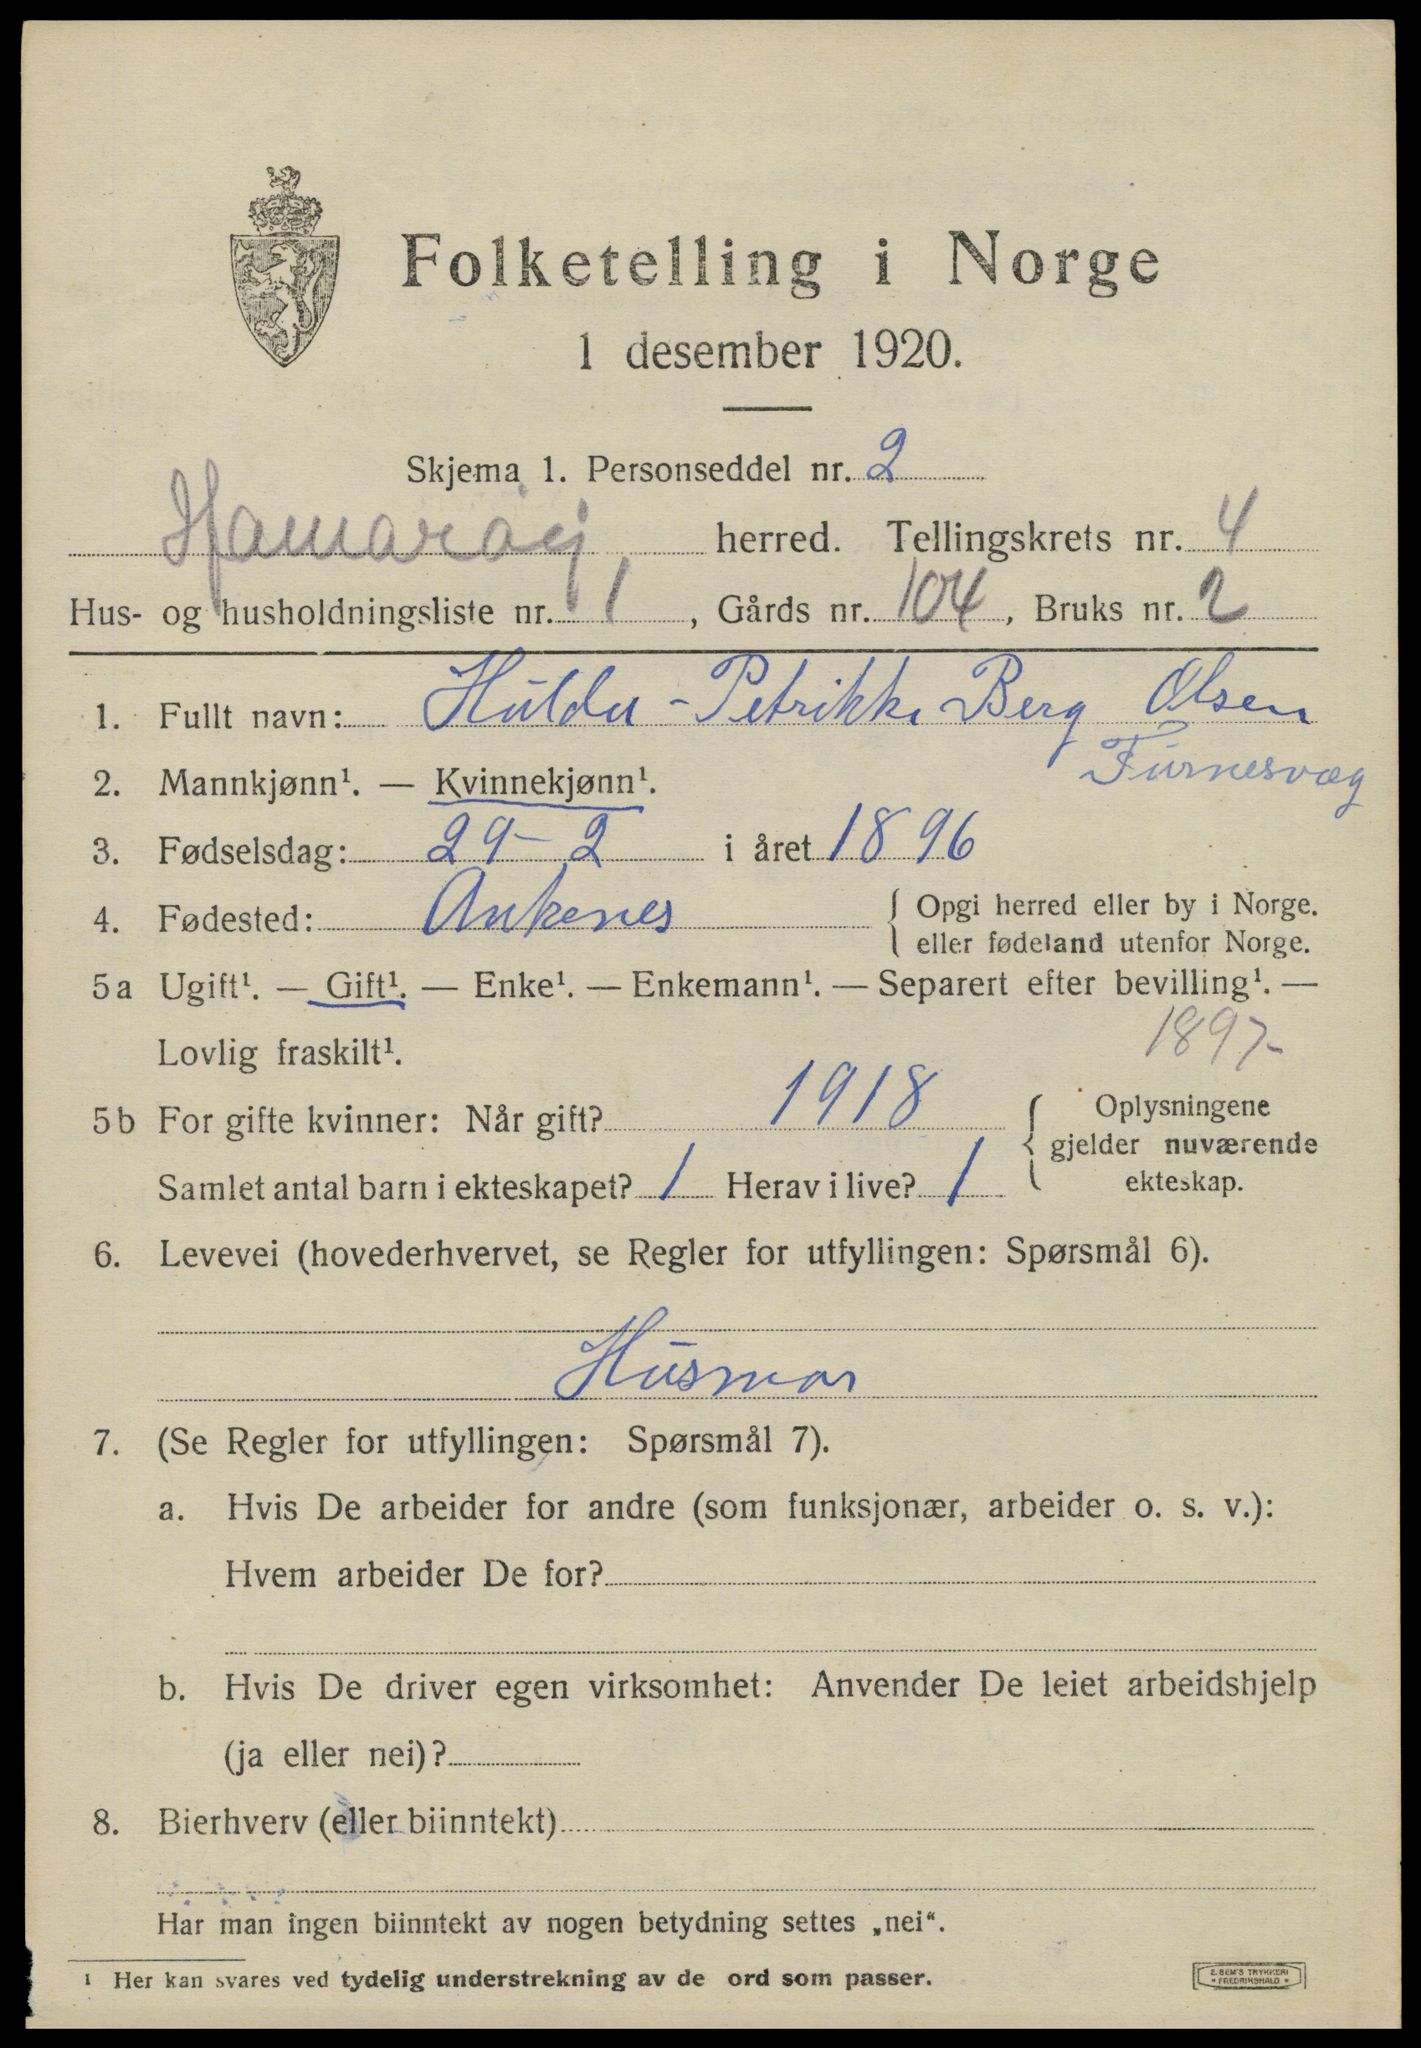 Folketelling i Norge
1 desember 1920.
Skjema 1. Personseddel nr. 2
Hamarøy herred. Tellingskrets nr. 4
Hus- og husholdningsliste nr. 1, Gårds nr. 104, Bruks nr. 2
1. Fullt navn: Hulda-Petrikke Berg Olsen
Furnesvæg
2. Mannkjønn¹. — Kvinnekjønn¹.
3. Fødselsdag: 29-2 i året 1896
4. Fødested: Ankenes { Opgi herred eller by i Norge.
eller fødeland utenfor Norge.
5a Ugift¹. — Gift¹. — Enke¹. — Enkemann¹. — Separert efter bevilling¹. —
Lovlig fraskilt¹. 1897-
5b For gifte kvinner: Når gift? 1918 { Oplysningene
gjelder nuværende
Samlet antal barn i ekteskapet? 1 Herav i live? 1 ekteskap.
6. Levevei (hovederhvervet, se Regler for utfyllingen: Spørsmål 6).
Husmor
7. (Se Regler for utfyllingen: Spørsmål 7).
a. Hvis De arbeider for andre (som funksjonær, arbeider o. s. v.):
Hvem arbeider De for?
b. Hvis De driver egen virksomhet: Anvender De leiet arbeidshjelp
(ja eller nei)?
8. Bierhverv (eller biinntekt)
Har man ingen biinntekt av nogen betydning settes „nei“.
¹ Her kan svares ved tydelig understrekning av de ord som passer.
E. SEM'S TRYKKERI
* FREDRIKSHALD *